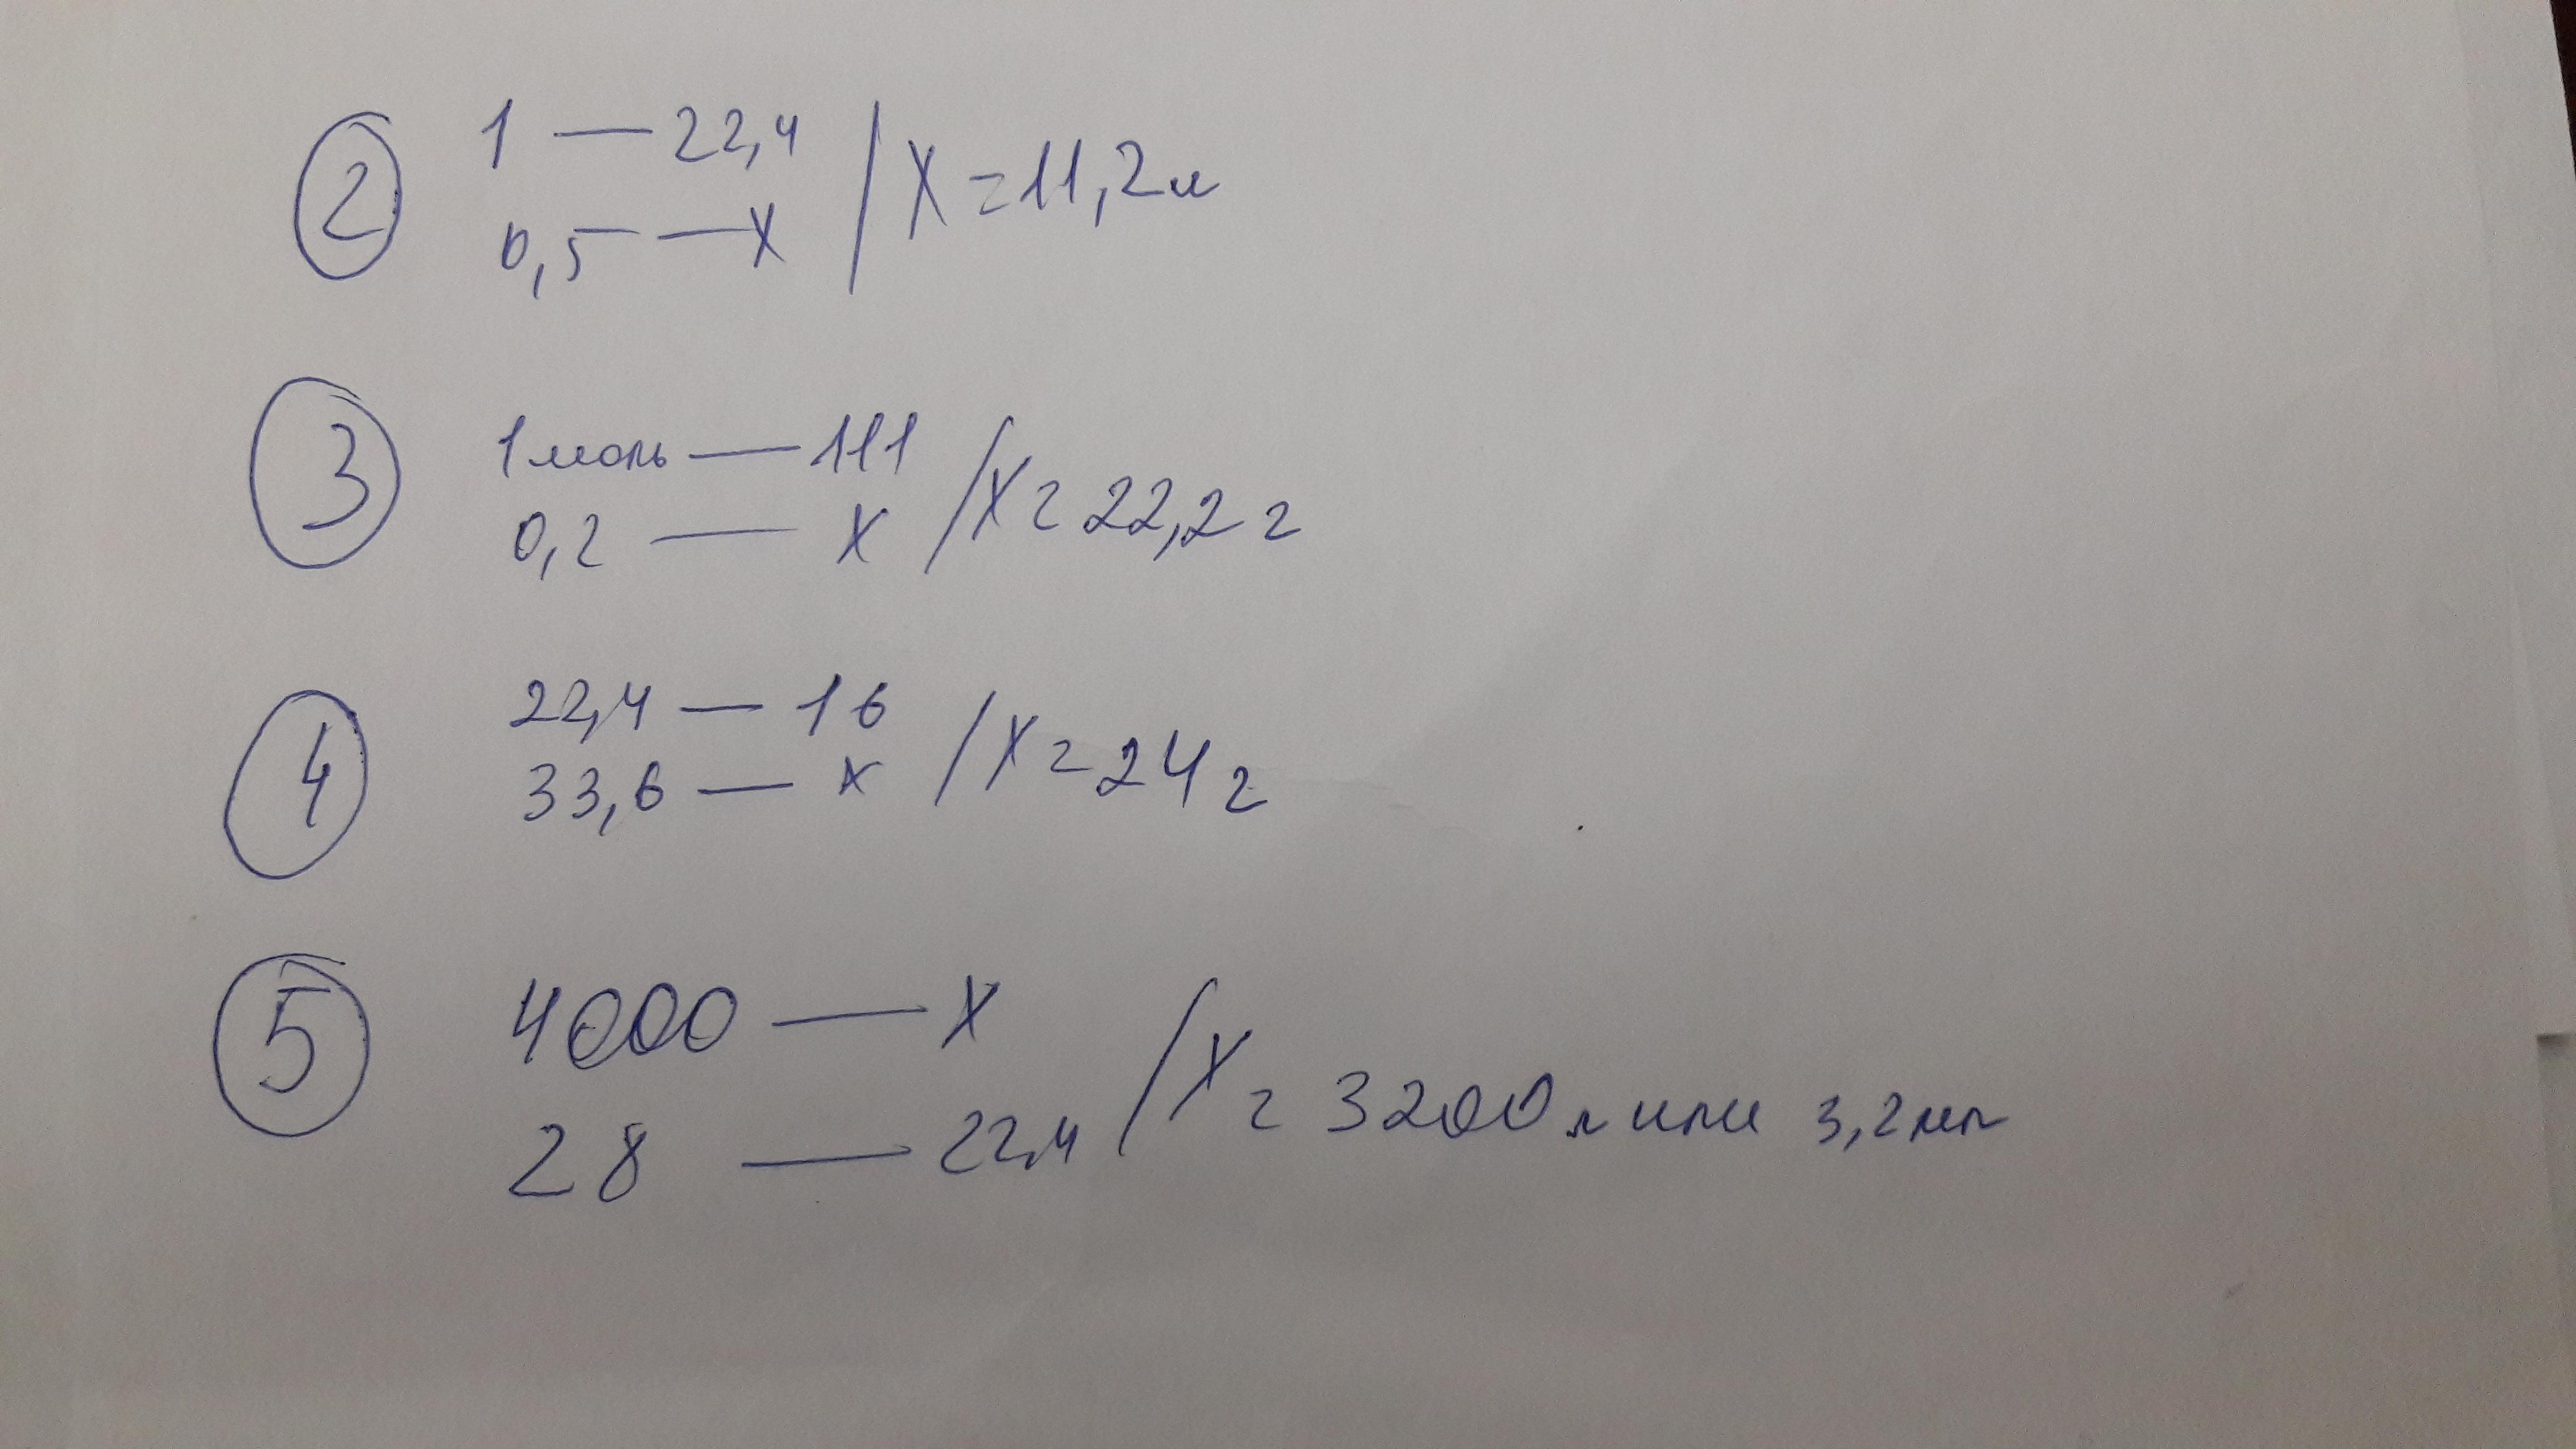 2 1 — 22,4 / X = 11,2 л
0,5 — X
3 1 моль — 111 / X = 22,2 г
0,2 — X
4 22,4 — 16 / X = 24 г
33,6 — X
5 4000 — X / X = 3200 л или 3,2
28 — 22,4